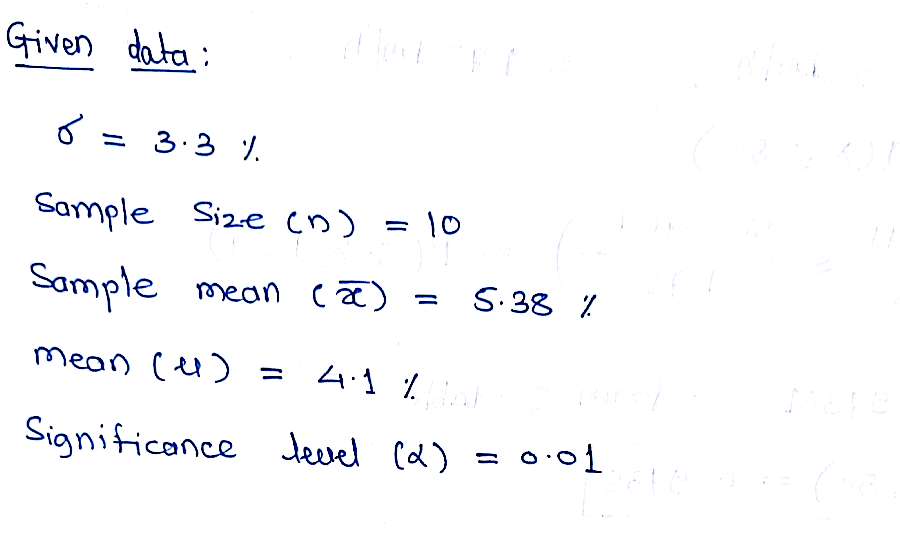 Given data:
σ = 3.3 %
Sample Size (n) = 10
Sample mean (x̄) = 5.38 %
mean (μ) = 4.1 %
Significance level (α) = 0.01